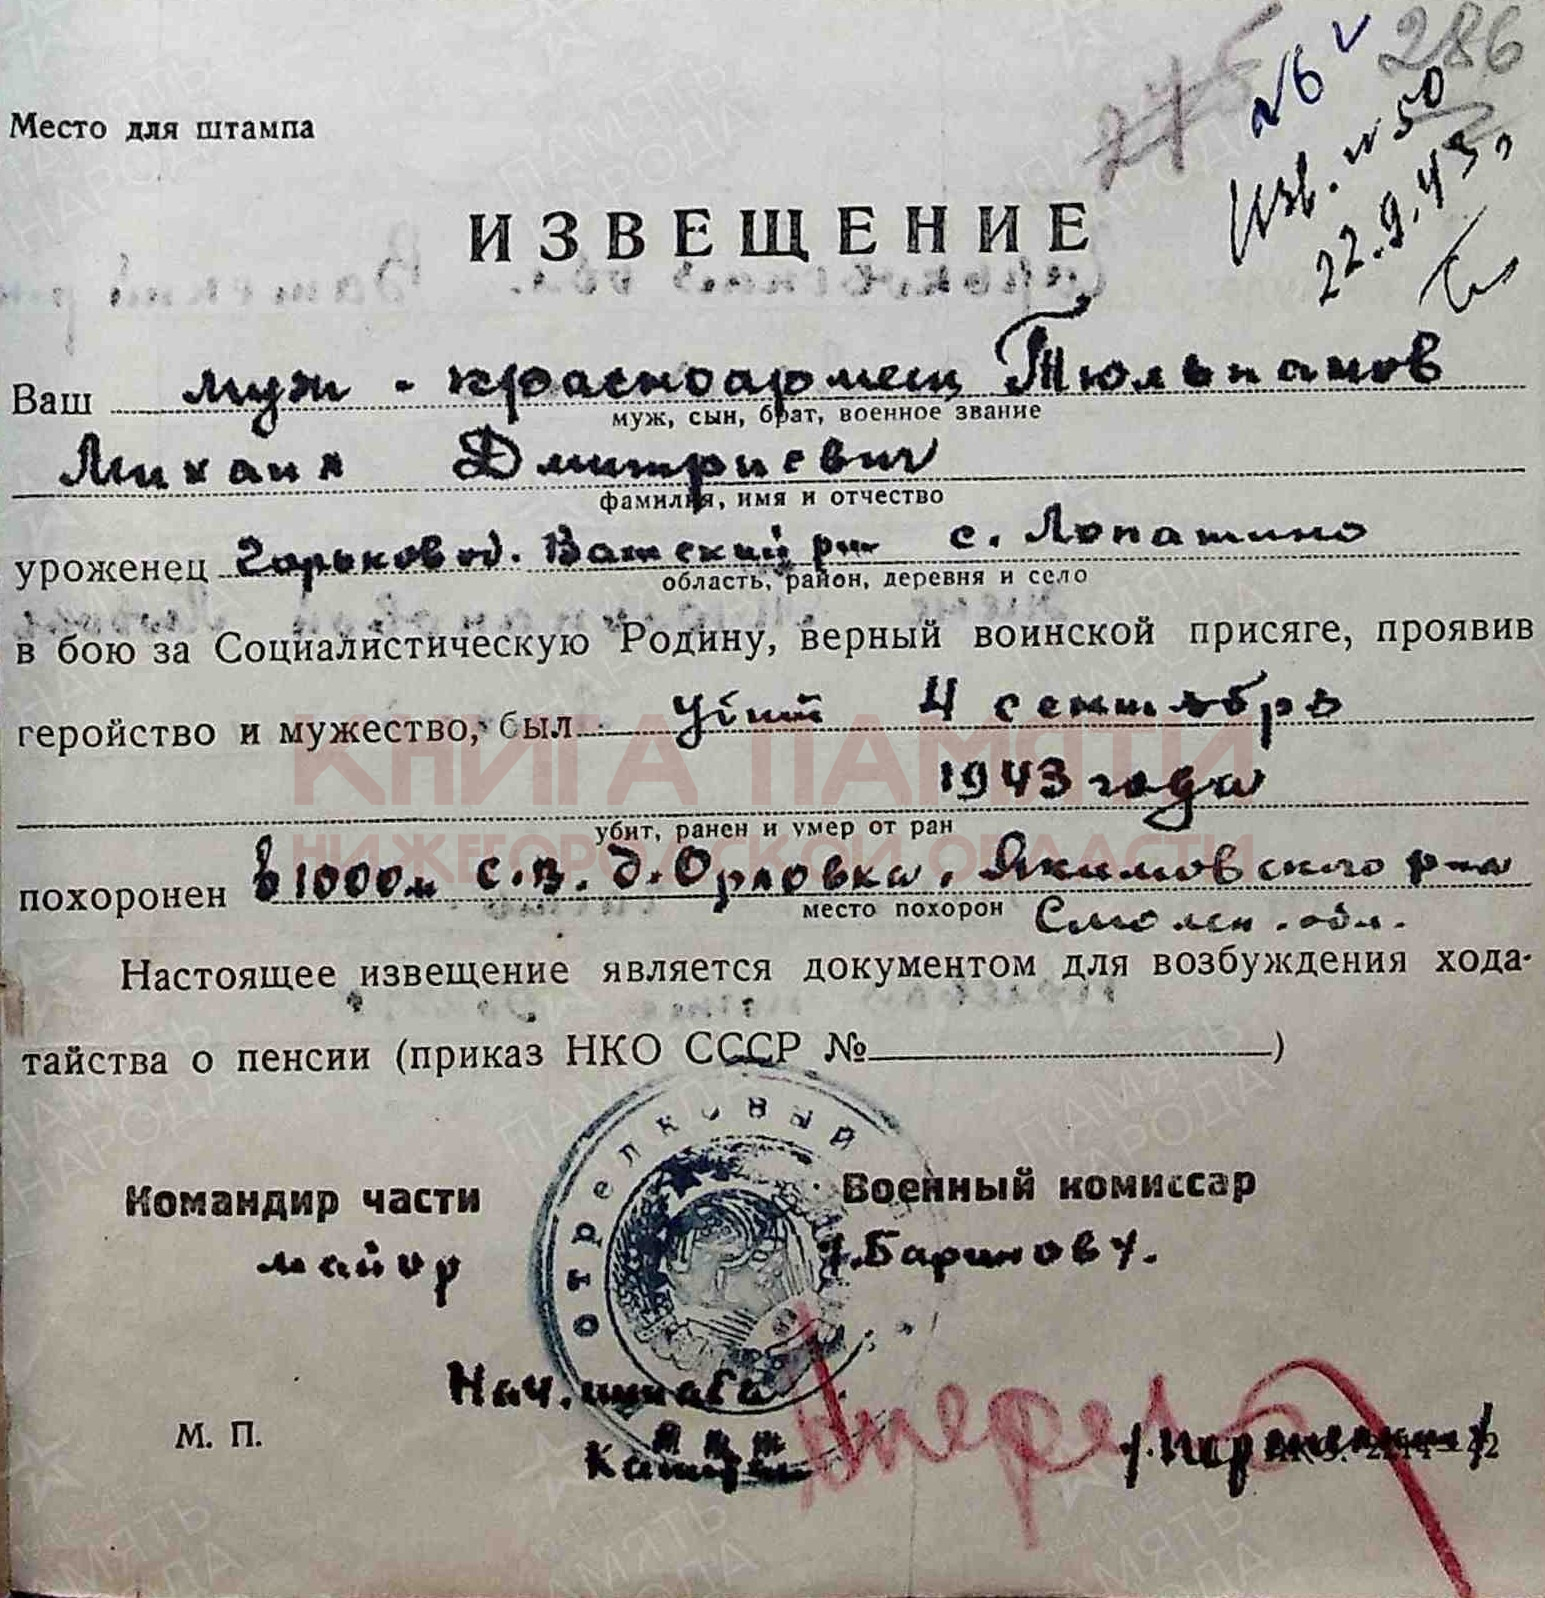 286
№6
Изв. №50
22.9.43,
Место для штампа
ИЗВЕЩЕНИЕ
Ваш муж - красноармеец Тюльпанов
муж, сын, брат, военное звание
Михаил Дмитриевич
фамилия, имя и отчество
уроженец Горьков об. Вачский р-н с. Лопатино
область, район, деревня и село
в бою за Социалистическую Родину, верный воинской присяге, проявив
геройство и мужество, был убит 4 сентября
1943 года
убит, ранен и умер от ран
похоронен в 1000 м с.в. д. Орловка, Якимовского р-на
место похорон Смолен. обл.
Настоящее извещение является документом для возбуждения хода-
тайства о пенсии (приказ НКО СССР №)
Командир части Военный комиссар
майор /.Баринов/.
Нач. штаба
М. П.
СТРЕЛКОВЫЙ
КНИГА ПАМЯТИ
НИЖЕГОРОДСКОЙ ОБЛАСТИ
ПАМЯТЬ НАРОДА